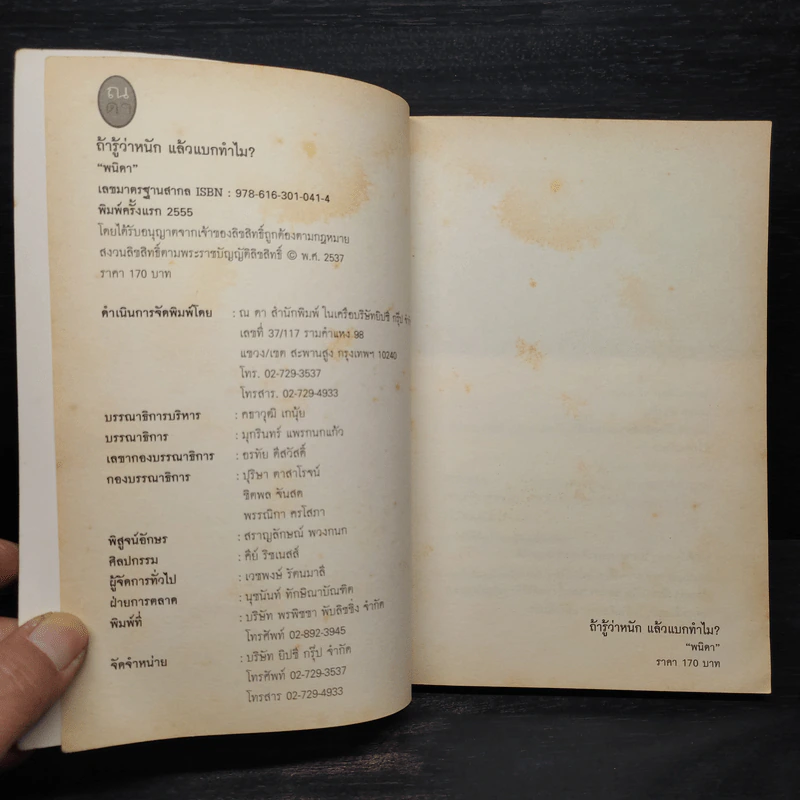 ณ
ดา
ถ้ารู้ว่าหนัก แล้วแบกทำไม?
“พนิดา”
เลขมาตรฐานสากล ISBN : 978-616-301-041-4
พิมพ์ครั้งแรก 2555
โดยได้รับอนุญาตจากเจ้าของลิขสิทธิ์ถูกต้องตามกฎหมาย
สงวนลิขสิทธิ์ตามพระราชบัญญัติลิขสิทธิ์ © พ.ศ. 2537
ราคา 170 บาท
ดำเนินการจัดพิมพ์โดย : ณ ดา สำนักพิมพ์ ในเครือบริษัทยิปซี กรุ๊ป
เลขที่ 37/117 รามคำแหง 98
แขวง/เขต สะพานสูง กรุงเทพฯ 10240
โทร. 02-729-3537
โทรสาร. 02-729-4933
บรรณาธิการบริหาร : คธาวุฒิ เกนุ้ย
บรรณาธิการ : มุกรินทร์ แพรกนกแก้ว
เลขากองบรรณาธิการ : อรทัย ดีสวัสดิ์
กองบรรณาธิการ : ปุริษา ตาสาโรจน์
ชิตพล จันสด
พรรณิกา ครโสภา
พิสูจน์อักษร : สราญลักษณ์ พวงกนก
ศิลปกรรม : คีย์ ริชเนสส์
ผู้จัดการทั่วไป : เวชพงษ์ รัตนมาลี
ฝ่ายการตลาด : นุชนันท์ ทักษิณาบัณฑิต
พิมพ์ที่ : บริษัท พรพิชชา พับลิชชิ่ง จำกัด
โทรศัพท์ 02-892-3945
จัดจำหน่าย : บริษัท ยิปซี กรุ๊ป จำกัด
โทรศัพท์ 02-729-3537
โทรสาร 02-729-4933
ถ้ารู้ว่าหนัก แล้วแบกทำไม?
“พนิดา”
ราคา 170 บาท